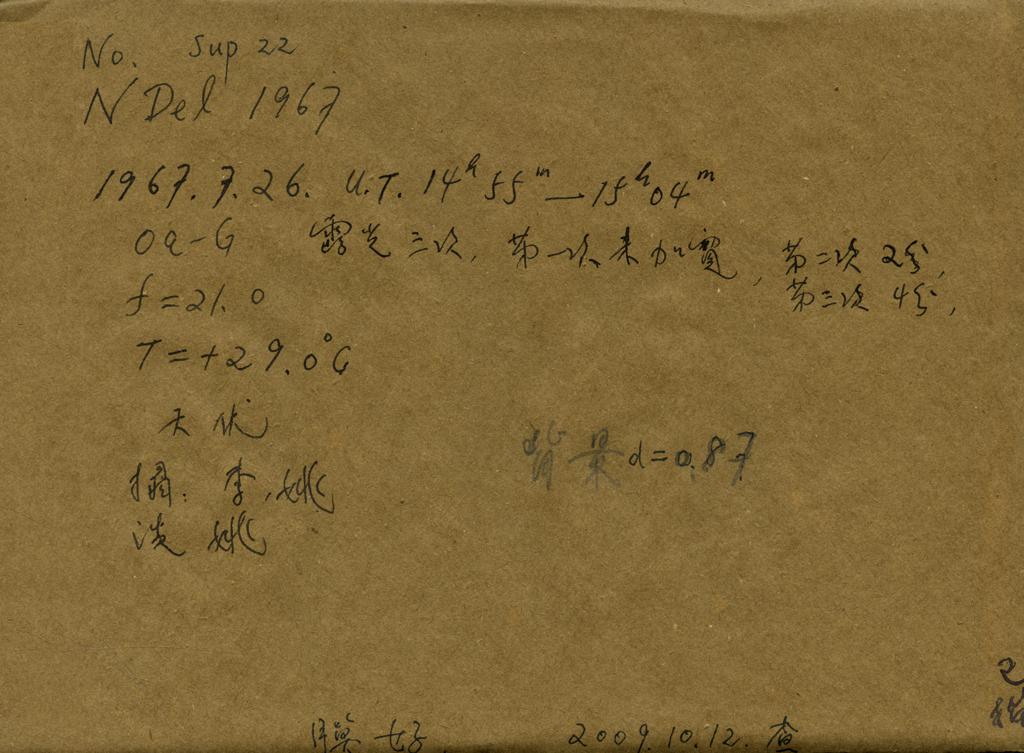 No. Sup 22
N Del 1967
1967.7.26. U.T. 14h55m—15h04m
Oa-G 露光三次, 第一次未加寬, 第二次 2分,
第三次 4分,
f=21.0
T=+29.0°C
天伏
攝: 李,姚
姚
背景 d=0.87
膜好. 2009.10.12. 查
已